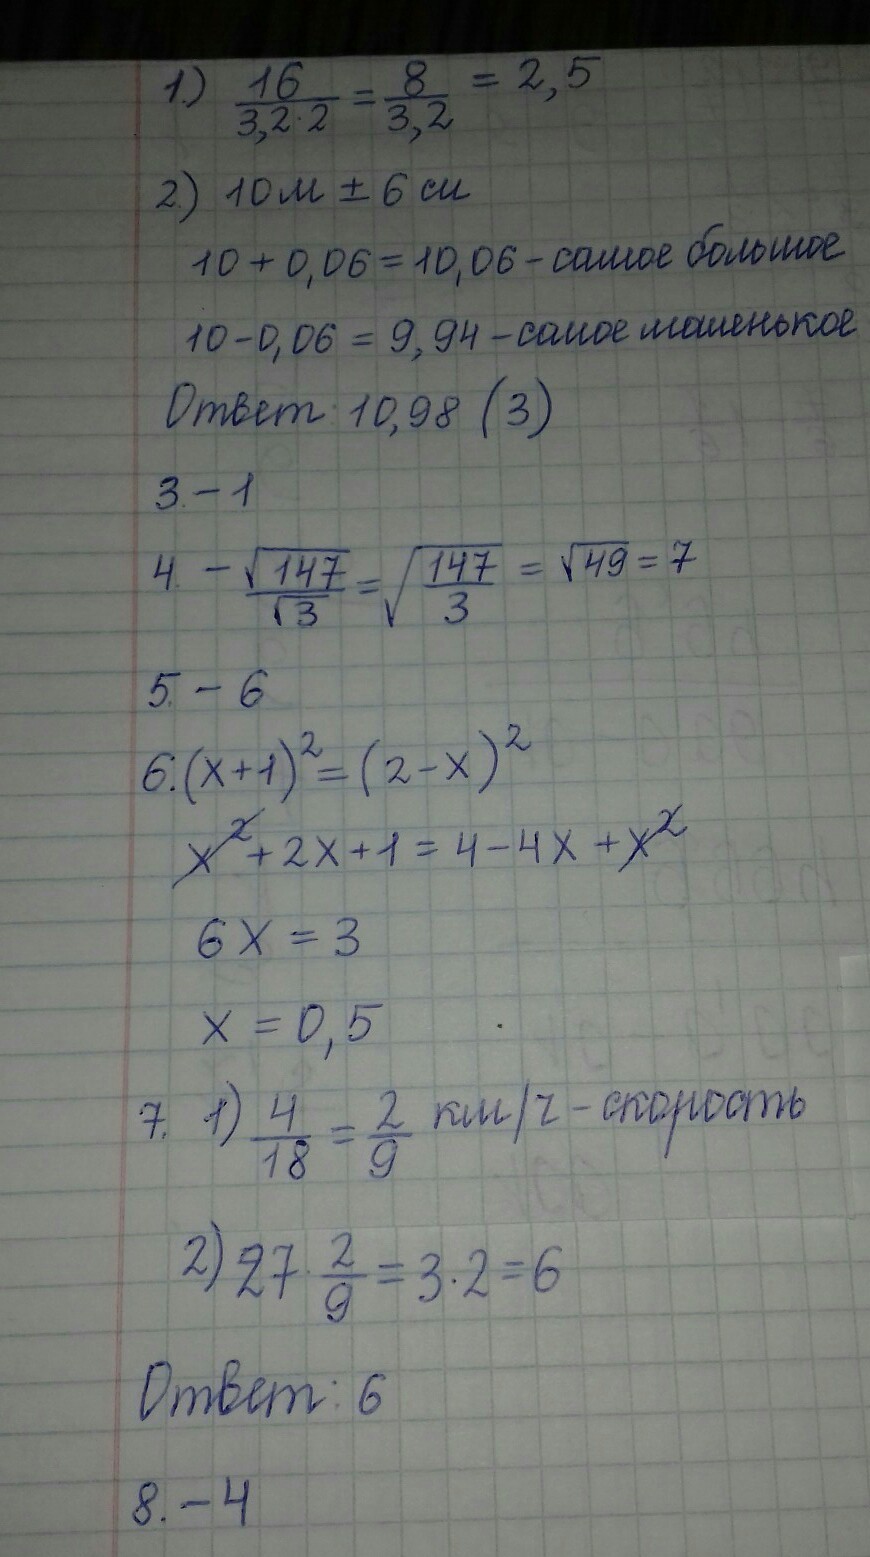 1.) 16/(3,2·2) = 8/3,2 = 2,5
2.) 10 м ± 6 см
10 + 0,06 = 10,06 - самое большое
10 - 0,06 = 9,94 - самое маленькое
Ответ: 10,98 (3)
3. - 1
4. - √147/√3 = √(147/3) = √49 = 7
5. - 6
6. (x+1)² = (2-x)²
x² + 2x + 1 = 4 - 4x + x²
6x = 3
x = 0,5
7. 1) 4/18 = 2/9 км/ч - скорость
2) 27 · 2/9 = 3 · 2 = 6
Ответ: 6
8. - 4